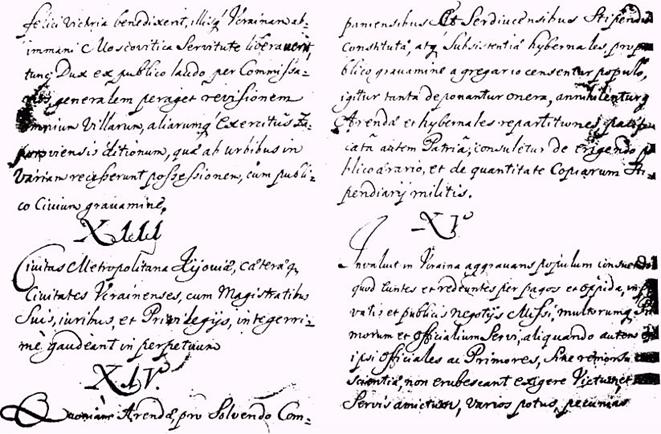 felici victoria benedixerit, illisq́ Ucrainam ab-
immani Moscovitica Servitute liberaverit,
tunc Dux ex publico laudo per Commissa-
rios generalem peraget revisionem
omnium Villarum, aliarumq́ Exercitus Za-
poroviensis ditionum, quæ ab urbibus in
variam receperunt possessionem, cum publi-
co Civium gravamine,
XIII
Civitas Metropolitana Kijoviæ, cæteræq́
Civitates Ucrainenses, cum Magistratibus
Suis, iuribus, et Privilegijs, integerri-
mè gaudeant in perpetuum
XIV.
Quoniam Arendæ pro Solvendo Com-
paniensibus Et Serdiucensibus Stipendio
Constitutæ atq́ Subsistentiæ hybernales, pro pu-
blico gravamine a gregario censentur populo,
igitur tanta deponantur onera, annihilentur
Arendæ et hybernales repartitiones, pacifi-
catâ autem Patriâ, consuletur de erigendo pu-
blico ærario, et de quantitate Copiarum Sti-
pendiarij militis.
XV
Invaluit in Ucraina aggravans populum consuetudo
quod euntes et redeuntes per pagos et oppida, in pri-
vatis et publicis negotijs Missi, multorumq́
morum et officialium Servi, aliquando autem
ipsi officiales ac Primores, Sine remorsu
scientiæ, non erubescant exigere Victum et
Servis amictum, varios potus, pecunias